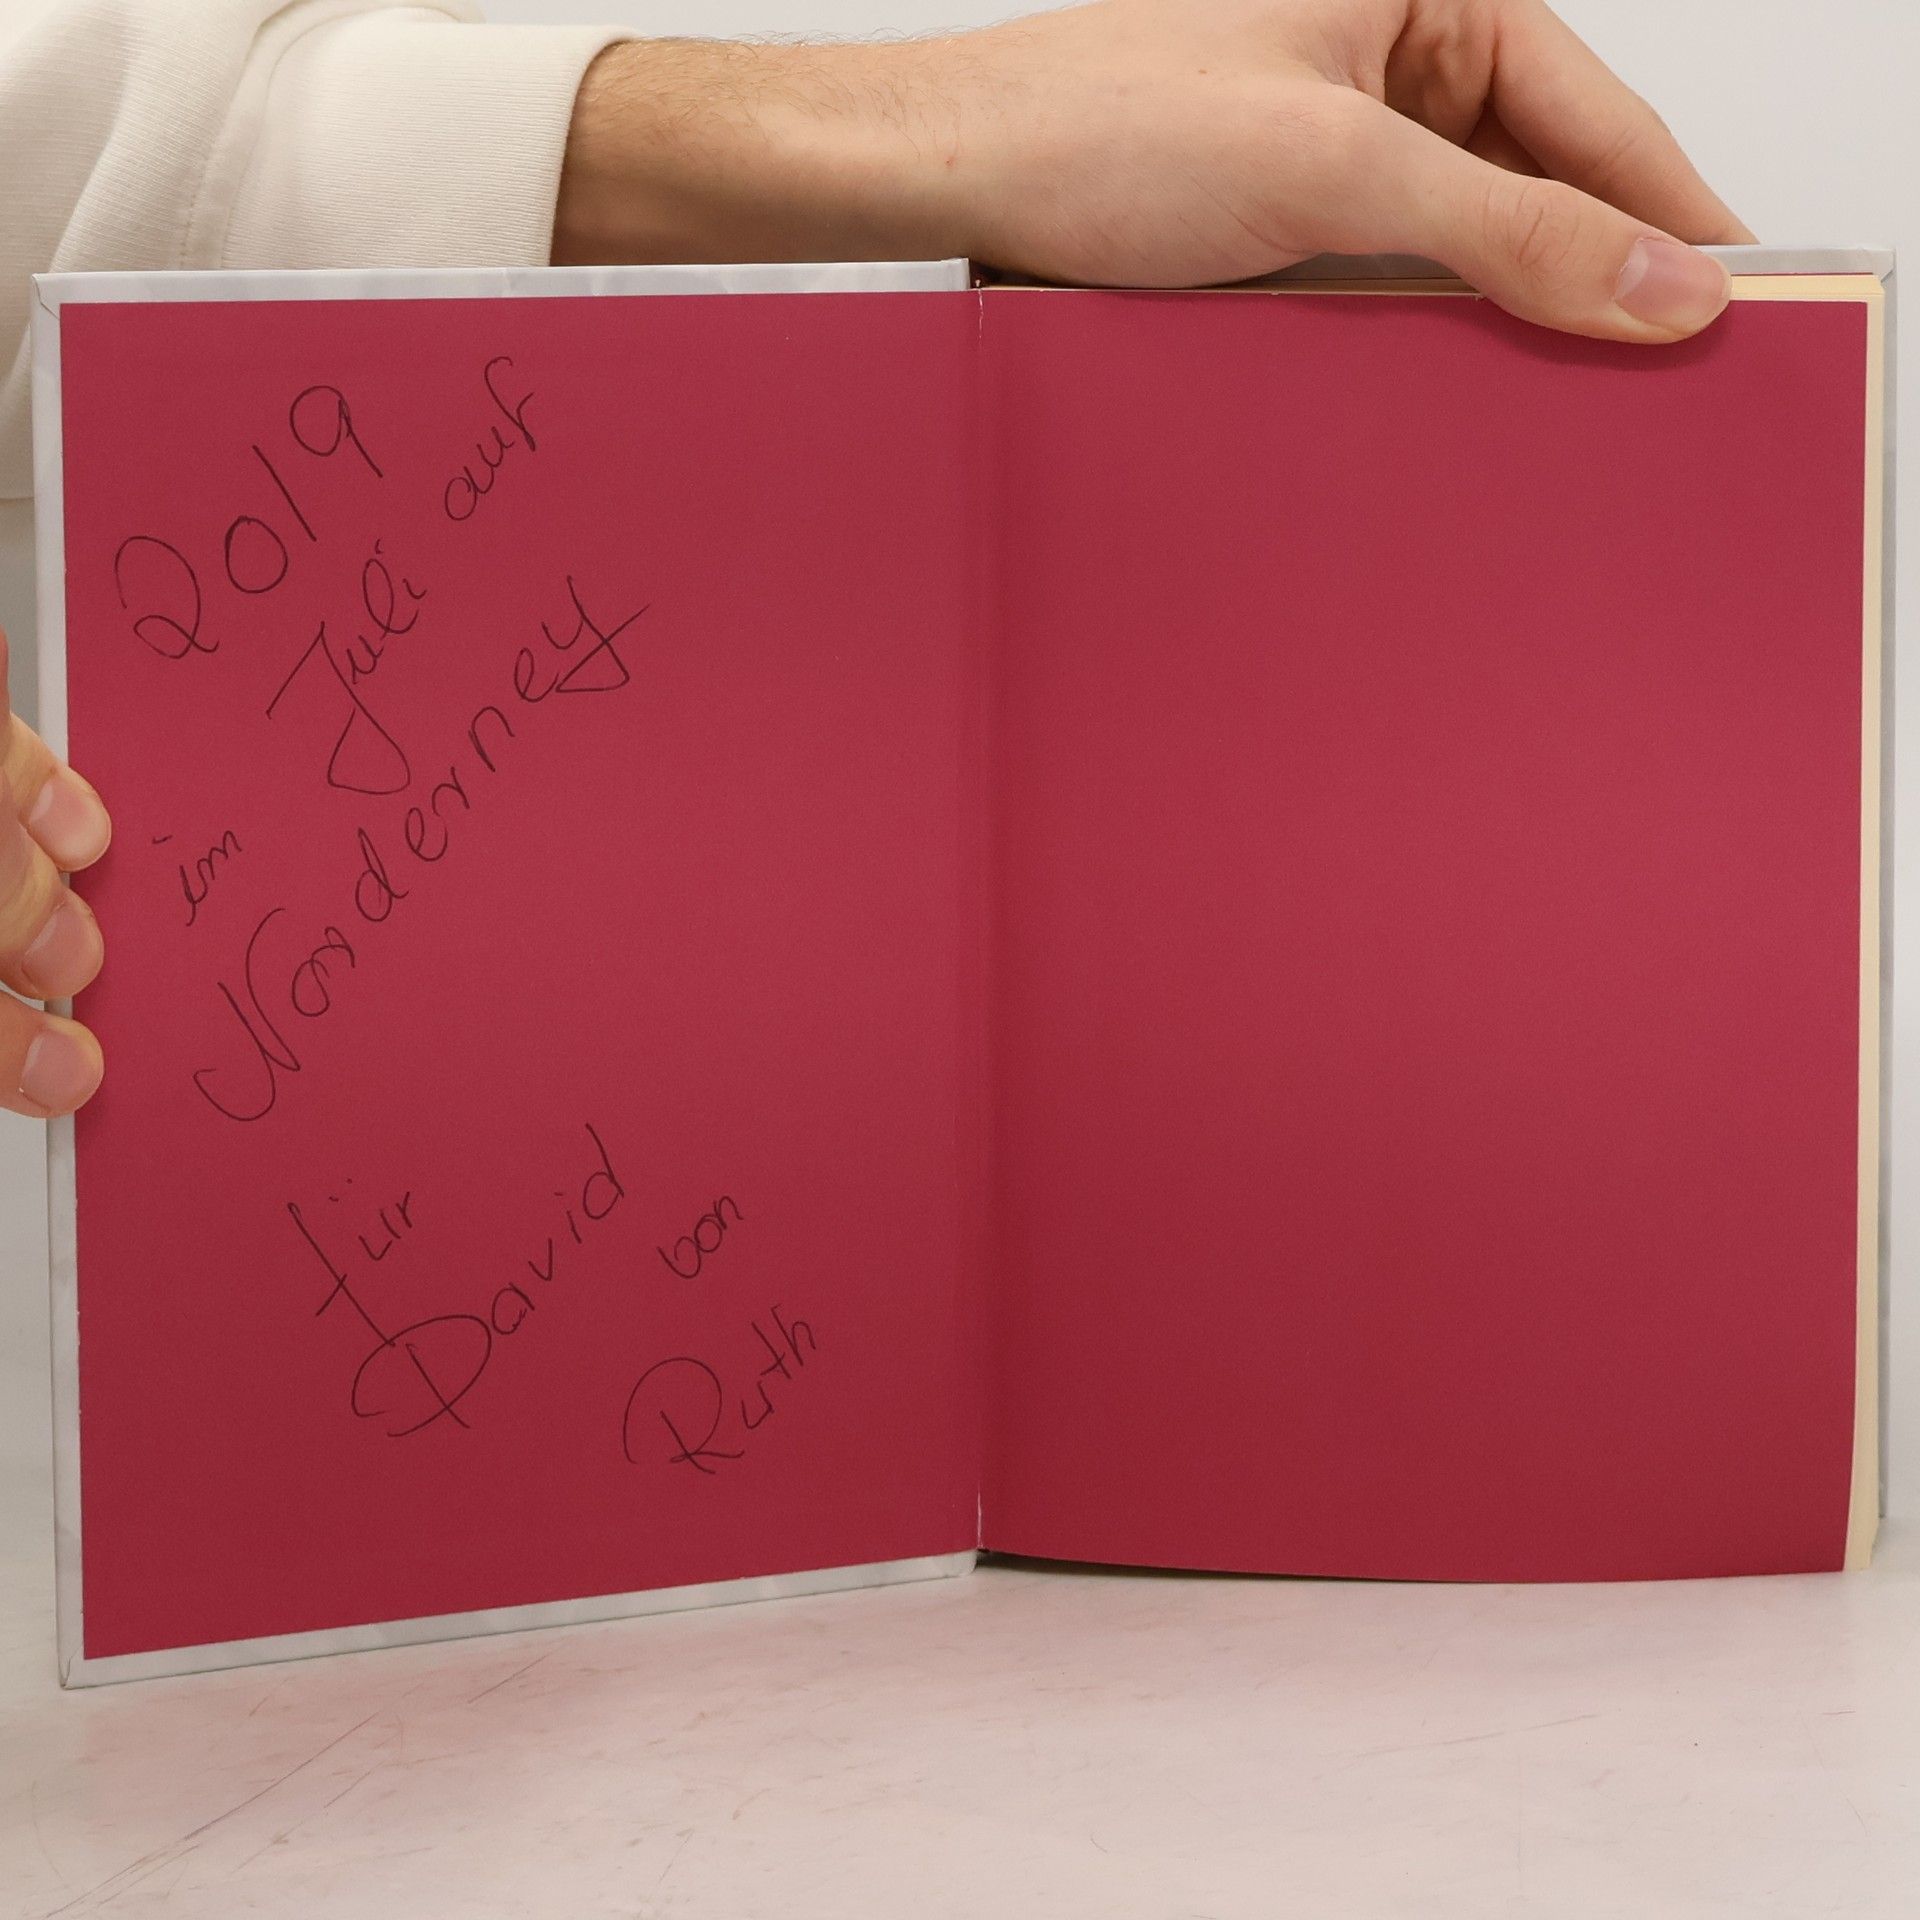 2019
im Juli auf
Norderney
für
David von
Ruth